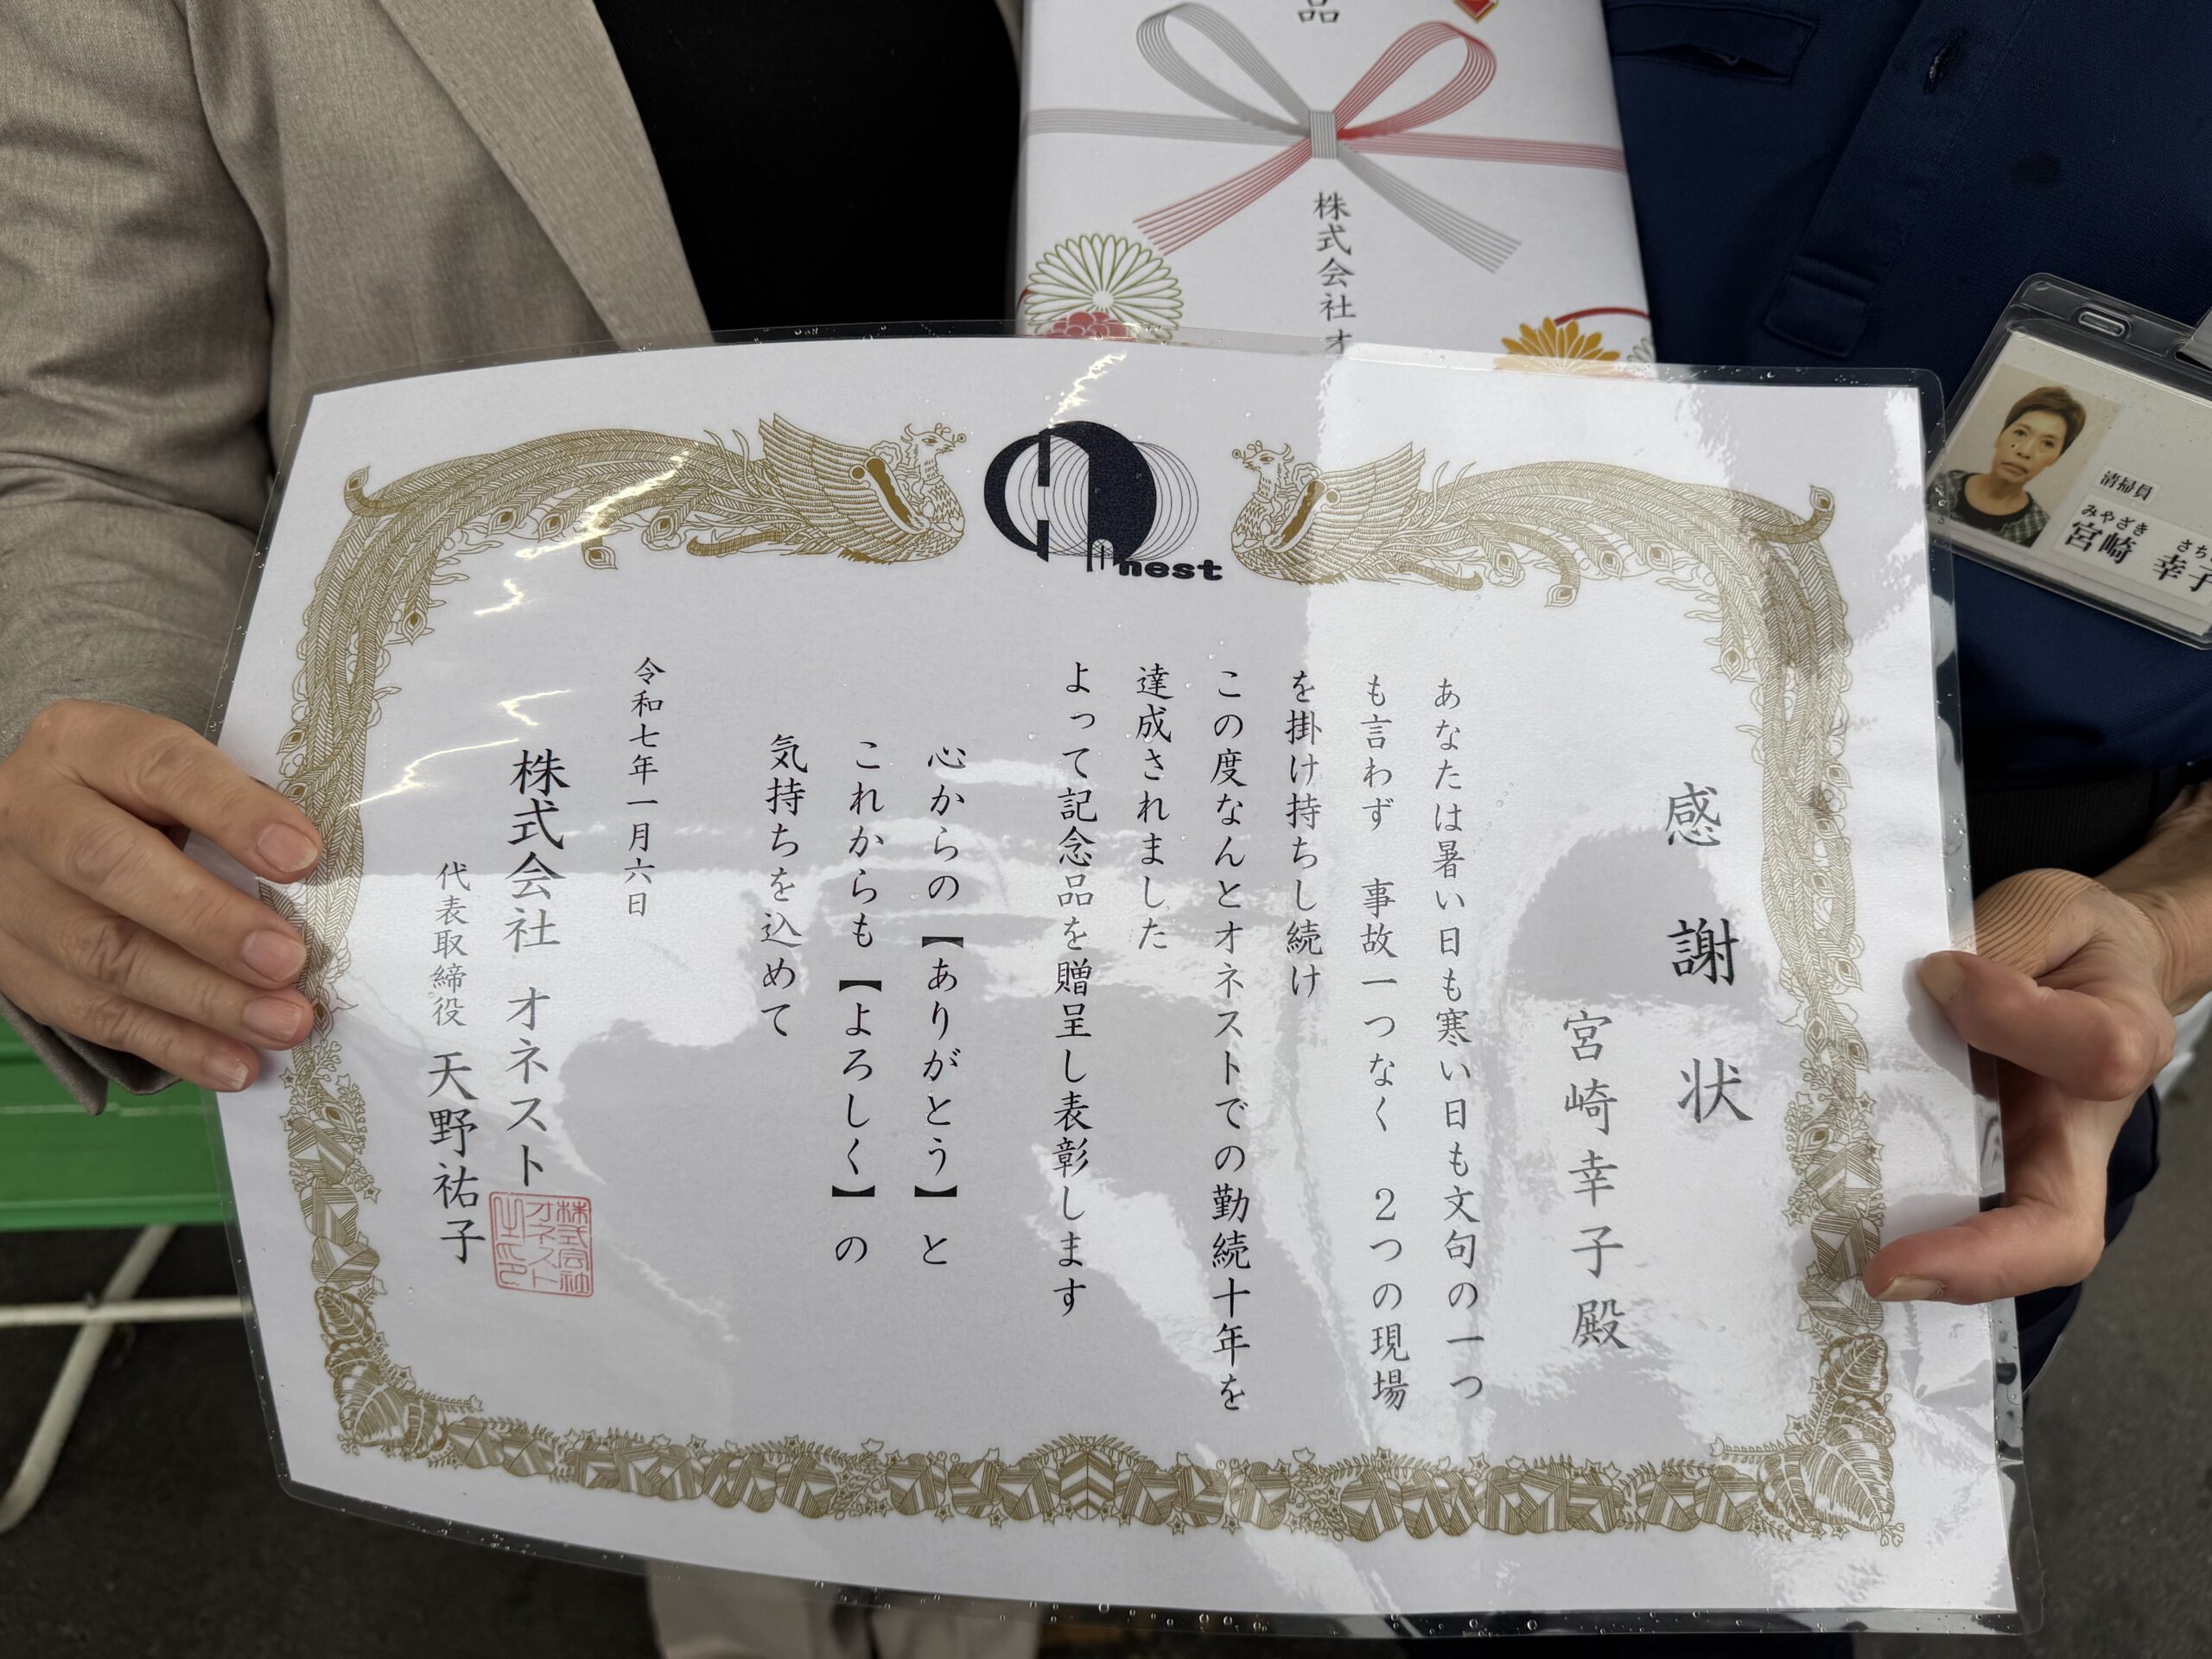 品
株式会社オ
nest
清掃員
みやざき さち
宮崎 幸子
感謝状
宮崎幸子殿
あなたは暑い日も寒い日も文句の一つ
も言わず 事故一つなく 2つの現場
を掛け持ちし続け
この度なんとオネストでの勤続十年を
達成されました
よって記念品を贈呈し表彰します
心からの【ありがとう】と
これからも【よろしく】の
気持ちを込めて
令和七年一月六日
株式会社 オネスト
代表取締役 天野祐子
株式会社
オネスト
之印